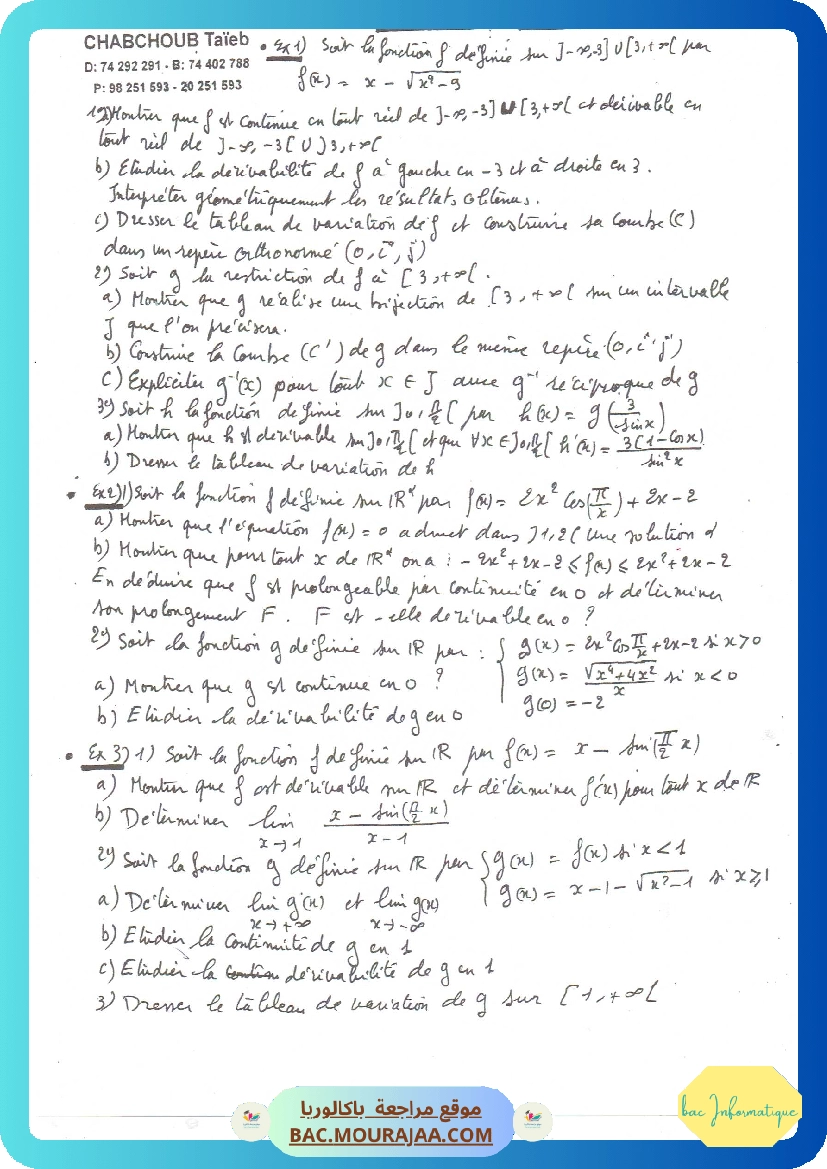 CHABCHOUB Taïeb
D: 74 292 291 - B: 74 402 788
P: 98 251 593 - 20 251 593
• Ex 1) Soit la fonction f définie sur ]-∞,-3] ∪ [3,+∞[ par
f(x) = x - √(x²-9)
1°) a) Montrer que f est continue en tout réel de ]-∞,-3] ∪ [3,+∞[ et dérivable en
tout réel de ]-∞,-3[ ∪ ]3,+∞[
b) Etudier la dérivabilité de f à gauche en -3 et à droite en 3.
Interpréter géométriquement les résultats obtenus.
c) Dresser le tableau de variation de f et construire sa courbe (C)
dans un repère orthonormé (0, i, j)
2) Soit g la restriction de f à [3,+∞[.
a) Montrer que g réalise une bijection de [3,+∞[ sur un intervalle
J que l'on précisera.
b) Construire la courbe (C') de g dans le même repère (0, i, j)
c) Expliciter g⁻¹(x) pour tout x ∈ J avec g⁻¹ réciproque de g
3°) Soit h la fonction définie sur ]0,π/2[ par h(x) = g(3/sinx)
a) Montrer que h est dérivable sur ]0,π/2[ et que ∀x ∈ ]0,π/2[ h'(x) = 3(1-cosx)/sin²x
b) Dresser le tableau de variation de h
• Ex 2) 1) Soit la fonction f définie sur IR* par f(x) = 2x² cos(π/x) + 2x - 2
a) Montrer que l'équation f(x) = 0 admet dans ]1,2[ une solution α
b) Montrer que pour tout x de IR* on a : -2x²+2x-2 ≤ f(x) ≤ 2x²+2x-2
En déduire que f est prolongeable par continuité en 0 et déterminer
son prolongement F. F est-elle dérivable en 0 ?
2°) Soit la fonction g définie sur IR par : { g(x) = 2x² cos π/x + 2x-2 si x>0
g(x) = √(x⁴+4x²)/x si x<0
g(0) = -2
a) Montrer que g est continue en 0 ?
b) Etudier la dérivabilité de g en 0
• Ex 3) 1) Soit la fonction f définie sur IR par f(x) = x - sin(π/2 x)
a) Montrer que f est dérivable sur IR et déterminer f'(x) pour tout x de IR
b) Déterminer lim x→1 (x - sin(π/2 x))/(x-1)
2°) Soit la fonction g définie sur IR par { g(x) = f(x) si x<1
g(x) = x-1-√(x²-1) si x≥1
a) Déterminer lim x→+∞ g(x) et lim x→-∞ g(x)
b) Etudier la continuité de g en 1
c) Etudier la dérivabilité de g en 1
3) Dresser le tableau de variation de g sur [1,+∞[
موقع مراجعة باكالوريا
BAC.MOURAJAA.COM
bac Informatique